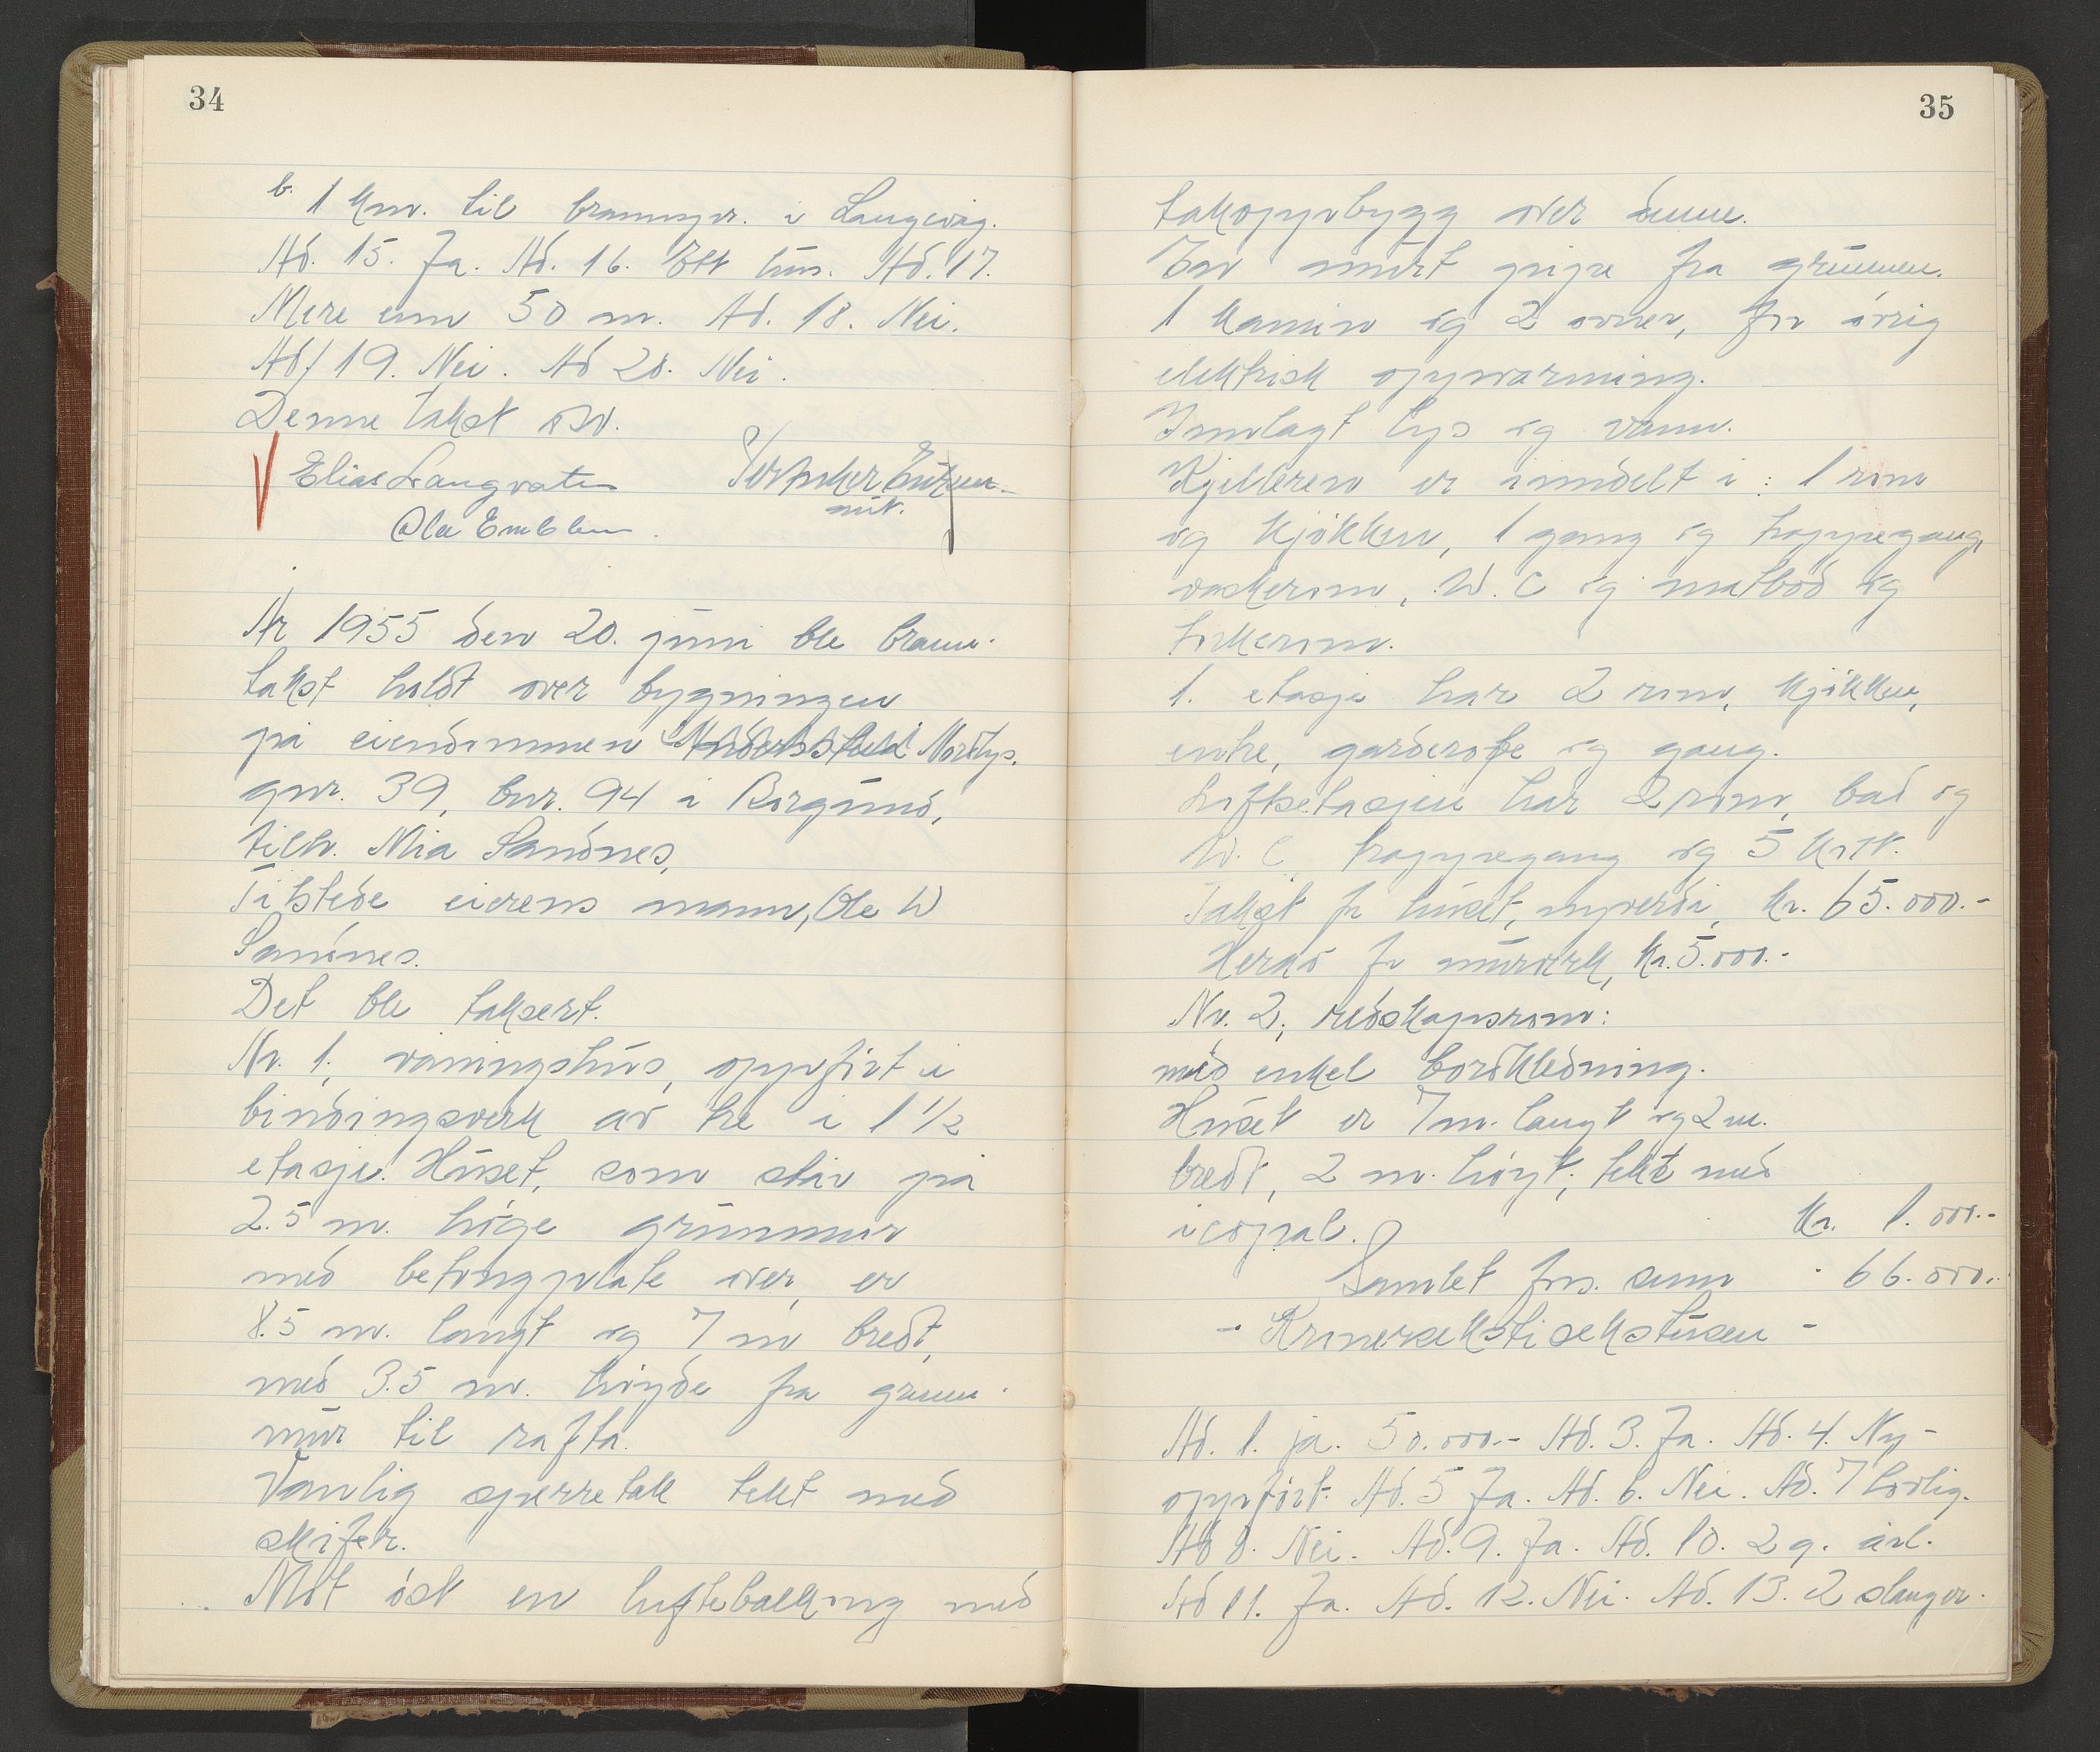 34
b. 1 km. til brannspr. i Langevåg.
Ad. 15. Ja. Ad. 16. Ett hus. Ad. 17.
Mere enn 50 m. Ad. 18. Nei.
Ad/19. Nei. Ad 20. Nei.
Denne takst osv.
Elias Langvatn
Ola Emblem
År 1955 den 20. juni ble brann-
takst holdt over bygningen
på eiendommen Nordlys.
gnr. 39, bnr. 94 i Borgund,
tilh. Mia Sandnes.
Tilstede eierens mann, Ole W
Sandnes.
Det ble taksert.
Nr. 1, våningshus, oppført i
bindingsverk av tre i 1 1/2
etasje. Huset, som står på
2.5 m. høge grunnmur
med betongplate over, er
8.5 m. langt og 7 m bredt,
med 3.5 m. høyde fra grunn-
mur til rafta.
Vanlig sperretak tekt med
skifer.
Mot øst en lufteballkong med
35
takoppbygg over denne.
En murt pipe fra grunnen.
1 kamin og 2 ovner, for øvrig
elektrisk oppvarming.
Innlagt lys og vann.
Kjelleren er inndelt i: 1 rom
og kjøkken, 1 gang og trappegang,
vaskerom, W.C og matbod og
tørkerom.
1. etasje har 2 rom, kjøkken,
entre, garderobe og gang.
Loftsetasjen har 2 rom, bad og
W.C, trappegang og 5 kott.
Takst for huset, nyverdi, kr. 65.000.-
Herav for murverk, kr. 5.000.-
Nr. 2, redskapsrom:
med enkel bordkledning.
Huset er 7 m. langt og 2 m.
bredt, 2 m. høyt, tekt med
icopal. kr. 1.000.-
Samlet fors. sum - 66.000.-
- Kronersekstisekstusen -
Ad. 1. ja. 50.000.- Ad. 3. Ja. Ad. 4. Ny-
oppført. Ad. 5 Ja. Ad. 6. Nei. Ad. 7 Lovlig.
Ad 8. Nei. Ad. 9. Ja. Ad. 10. 2 g. årl.
Ad 11. Ja. Ad. 12. Nei. Ad. 13. 2 slanger.